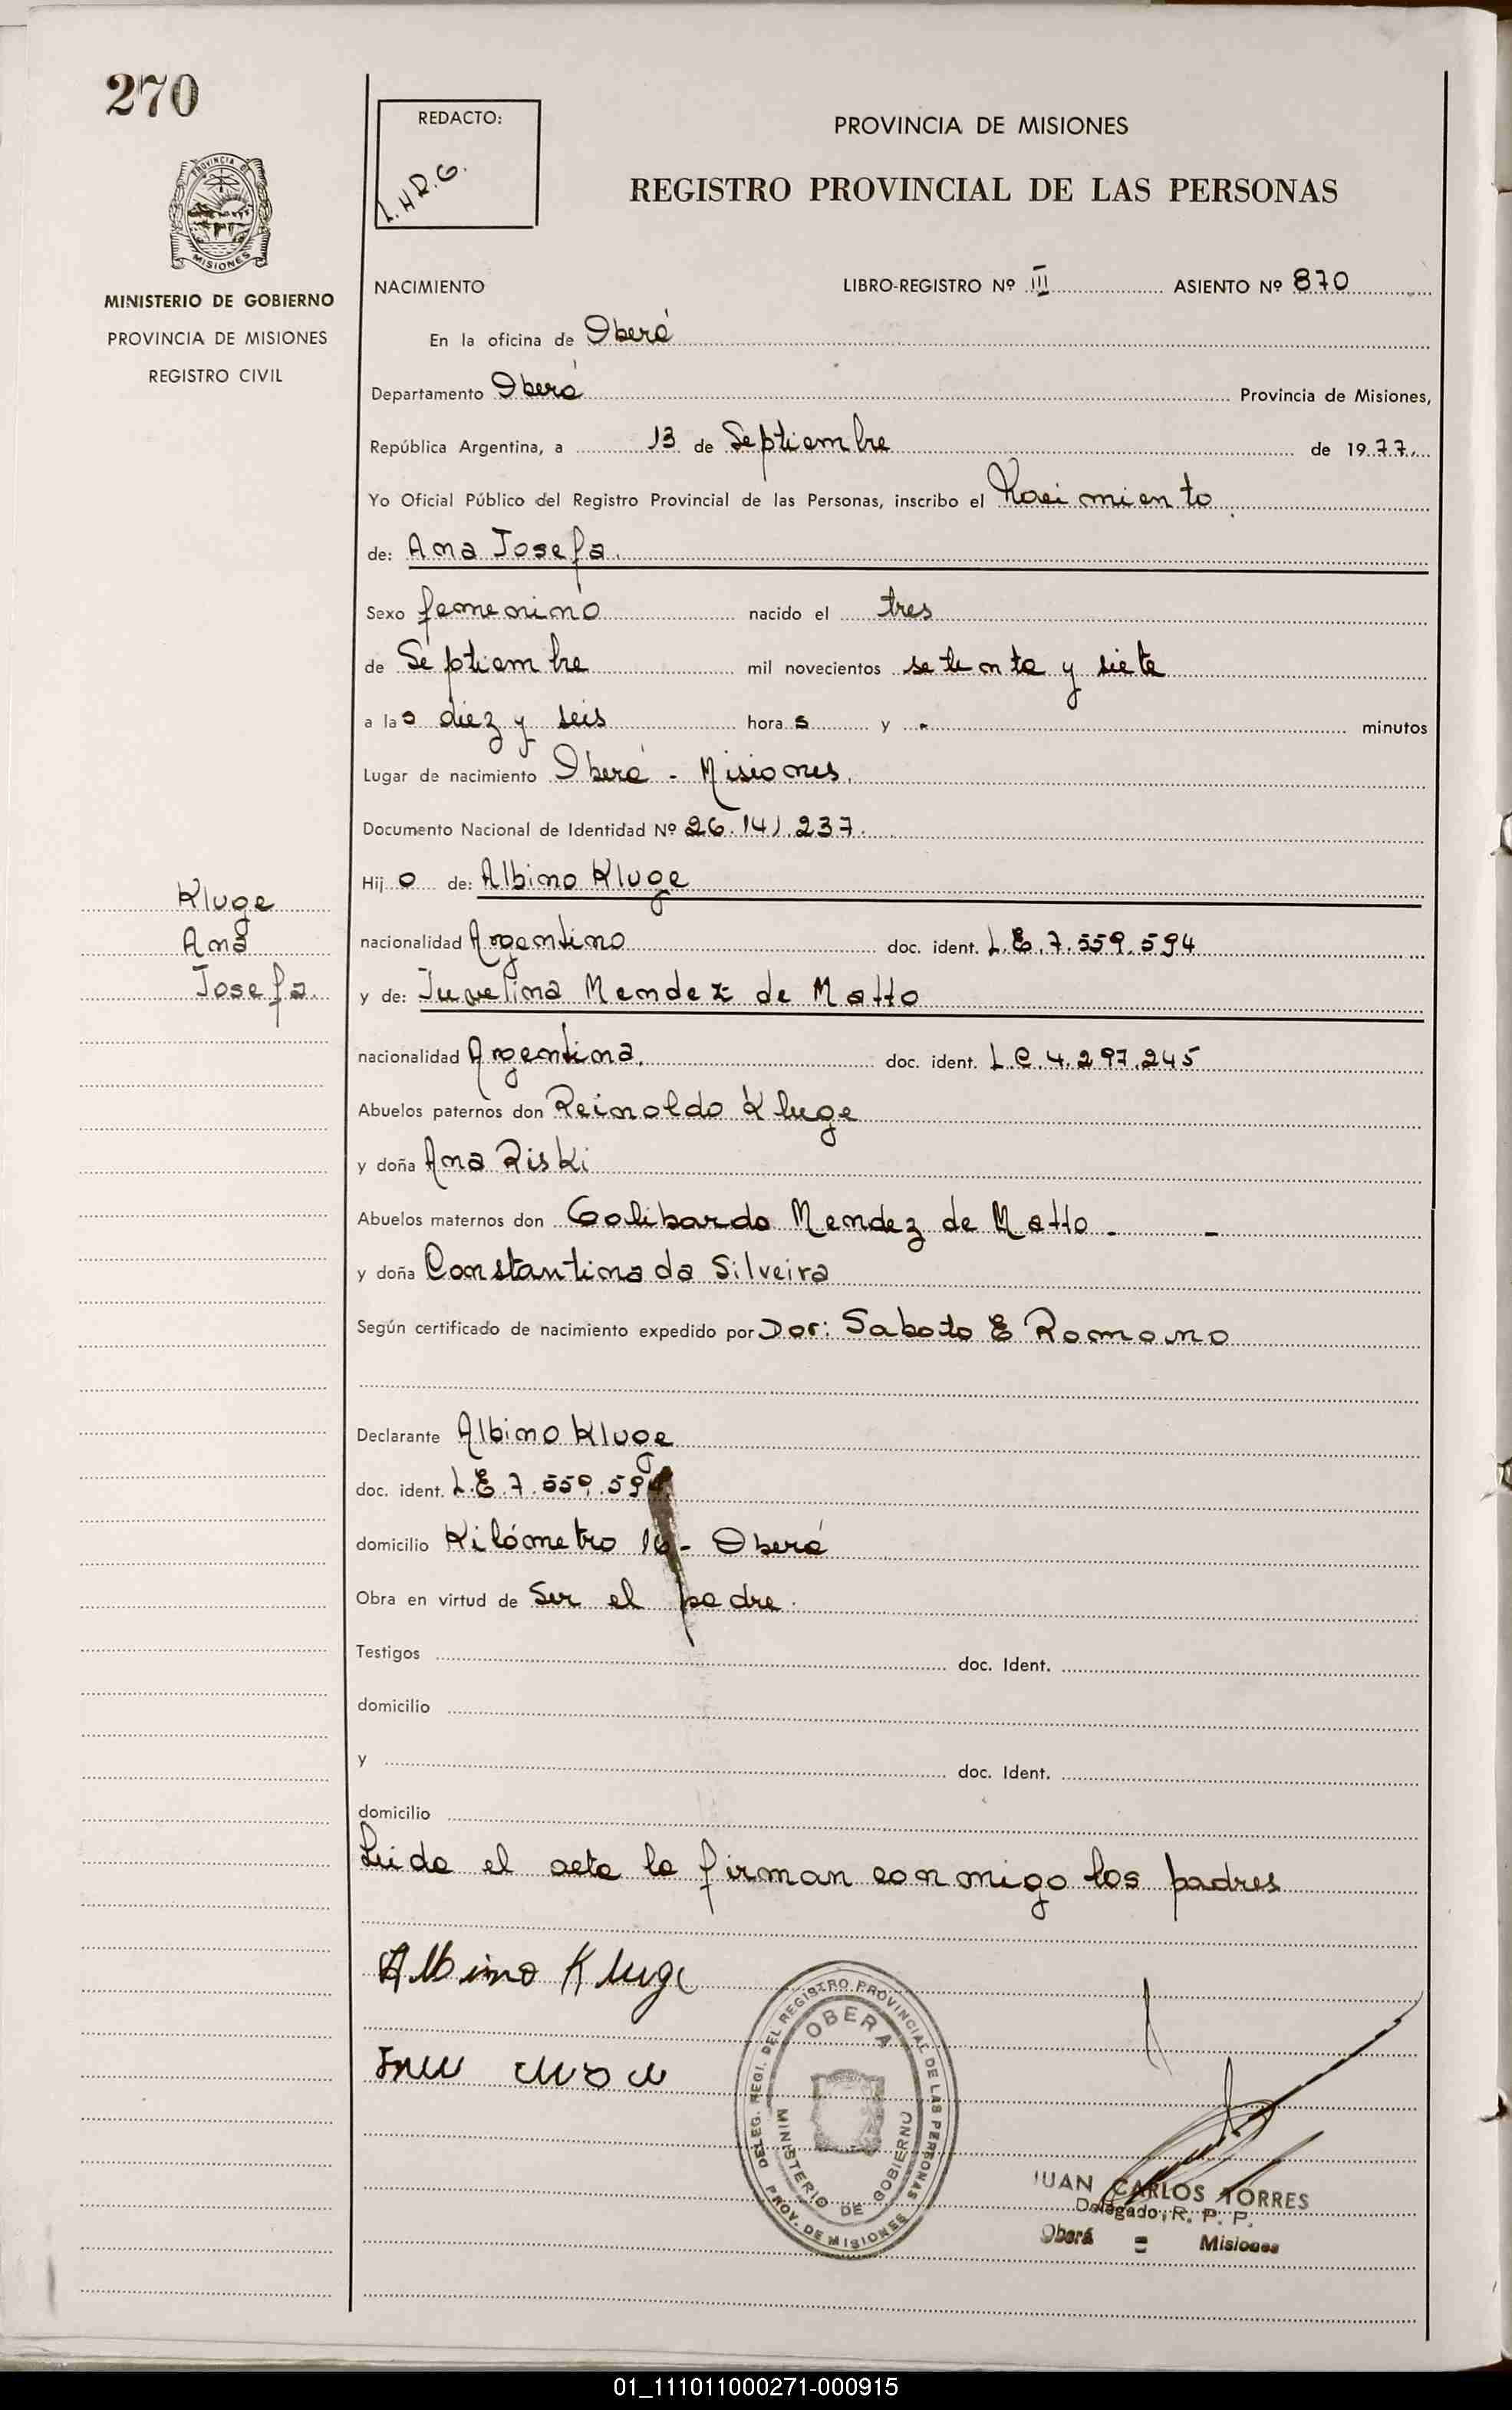 270
REDACTO:
I.H.R.G.
PROVINCIA DE MISIONES
REGISTRO PROVINCIAL DE LAS PERSONAS
PROVINCIA DE
MISIONES
MINISTERIO DE GOBIERNO
PROVINCIA DE MISIONES
REGISTRO CIVIL
NACIMIENTO LIBRO-REGISTRO Nº III ASIENTO Nº 870
En la oficina de Oberá
Departamento Oberá Provincia de Misiones,
República Argentina, a 13 de Septiembre de 1977
Yo Oficial Público del Registro Provincial de las Personas, inscribo el Nacimiento
de: Ana Josefa.
Sexo femenino nacido el tres
de Septiembre mil novecientos setenta y siete
a las diez y seis horas y - minutos
Lugar de nacimiento Oberá - Misiones.
Documento Nacional de Identidad Nº 26.141.237.
Hijo de: Albino Kluge
Kluge
Ana
Josefa.
nacionalidad Argentino doc. ident. L.E.7.559.594
y de: Juvelina Mendez de Matto
nacionalidad Argentina. doc. ident. L.C.4.297.245
Abuelos paternos don Reinoldo Kluge
y doña Ana Riski
Abuelos maternos don Golibardo Mendez de Matto - -
y doña Constantina da Silveira
Según certificado de nacimiento expedido por Dor: Saboto E Romano
Declarante Albino Kluge
doc. ident. L.E.7.559.594
domicilio Kilómetro 16 - Oberá
Obra en virtud de Ser el padre.
Testigos doc. Ident.
domicilio
y doc. Ident.
domicilio
Leida el acta la firman conmigo los padres
Albino Kluge
DELEG. REGI. DEL REGISTRO PROVINCIAL DE LAS PERSONAS
OBERA
MINISTERIO DE GOBIERNO
PROV. DE MISIONES
JUAN CARLOS TORRES
Delegado R. P. P.
Oberá = Misiones
01_111011000271-000915